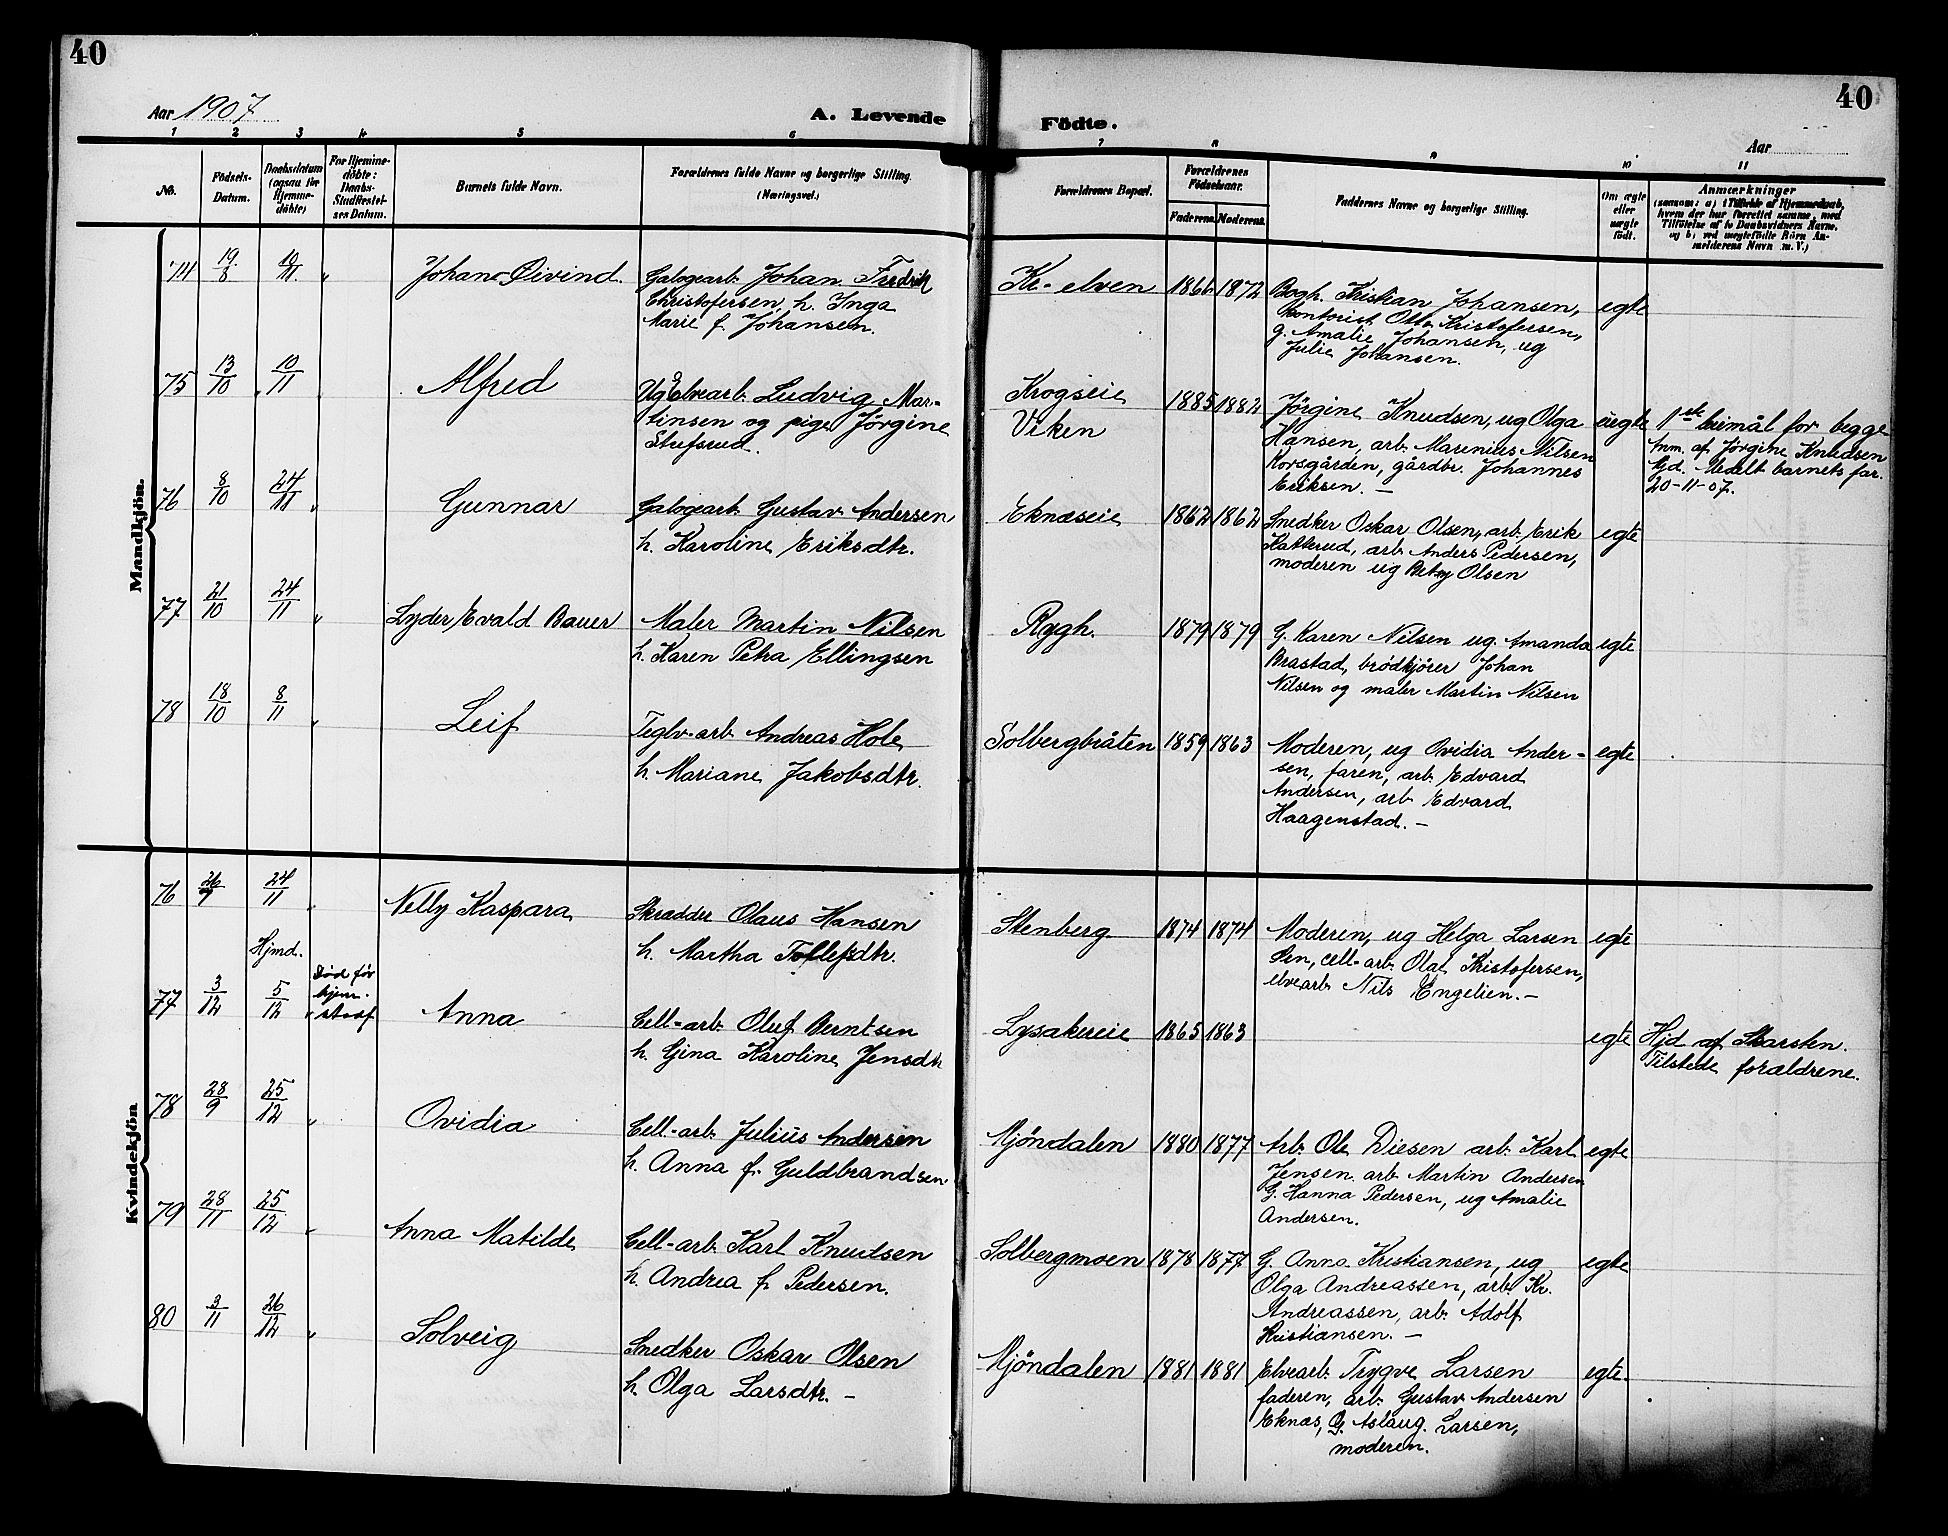 40
40
Aar 1907
A. Levende
Födte.
Aar
1 2 3 4 5 6 7 8 9 10 11
No.
Födsels-
Datum.
Daabsdatum
(ogsaa for
Hjemme-
døbte)
For Hjemme-
døbte:
Daabs-
Stadfæstel-
ses Datum.
Barnets fulde Navn.
Forældrenes fulde Navne og borgerlige Stilling.
(Næringsvei.)
Forældrenes Bopæl.
Forældrenes
Födselsaar.
Faderens. Moderens.
Faddernes Navne og borgerlige Stilling.
Om ægte
eller
uægte
født.
Anmærkninger
Mandkjön.
74 19/8 10/11 "
Johan Öivind
Galogearb. Johan Fredrik
Christofersen, h. Inga
Marie f. Johansen.
Kr-elven
1866 1872
Bogh. Kristian Johansen,
kontorist Otto Kristofersen,
g. Amalie Johansen, ug
Julie Johansen.
egte
75 13/10 10/11
Alfred
Ug Elvearb. Ludvig Mar-
tinsen og pige Jörgine
Krogseie
Viken
1885 1882
Jörgine Knudsen, ug Olga
Hansen, arb. Marenius Nilsen
Korsgården, gårdbr. Johannes
Eriksen. -
uegte
1ste leirmål for begge
Anm. af Jörgine Knudsen
Gjd. Medelt barnets far.
20-11-07.
76 8/10 24/11 "
Gunnar
Galogearb. Gustav Andersen
h. Karoline Eriksdtr.
Eknæseie
1862 1862
Snedker Oskar Olsen, arb. Erik
Katterud, arb. Anders Pedersen,
moderen ug Betsy Olsen
egte
77 21/10 24/11 "
Lyder Evald Bauer
Maler Martin Nilsen
h. Karen Petra Ellingsen
Rygh.
1879 1879
G. Karen Nilsen ug. Amanda
Brastad, brödkjörer Johan
Nilsen og maler Martin Nilsen
egte
78 18/10 8/11 "
Leif
Teglv-arb. Andreas Hole
h. Mariane Jakobsdtr.
Solbergbråten
1859 1863
Moderen, ug Ovidia Ander-
sen, faren, arb. Edvard
Andersen, arb. Edvard
Haagenstad. -
egte
Kvindekjön
76 26/9 24/11 "
Nelly Kaspara
Skrædder Olaus Hansen
h. Martha Tollefsdtr.
Stenberg
1874 1874
Moderen, ug Helga Larsen
Sen, cell-arb. Olaf Kristofersen,
elvearb Nils Engelien. -
egte
Hjmd.
Död för
hjem.
stadf
77 3/12 5/12 "
Anna
Cell-arb. Oluf Berntsen
h. Gina Karoline Jensdtr
Lysakereie
1865 1863
egte
Hjd af Skarsten.
Tilstede forældrene.
78 28/9 25/12 "
Ovidia
Cell-arb. Julius Andersen
h. Anna f. Guldbrandsen
Mjöndalen
1880 1877
Arb. Ole Diesen arb. Karl
Jensen arb Martin Andersen
G. Hanna Pedersen, ug Amalie
Andersen.
egte
79 28/11 25/12 "
Anna Matilde
Cell-arb. Karl Knudsen
h. Andrea f. Pedersen.
Solbergmoen
1878 1877
G. Anna Kristiansen, ug
Olga Andreassen, arb. Kr.
Andreassen, arb. Adolf
Kristiansen. -
egte
80 3/11 26/12 "
Solveig
Snedker Oskar Olsen
h. Olga Larsdtr. -
Mjöndalen
1881 1881
Elvearb. Trygve Larsen
faderen, arb. Gustav Andersen
Eknæs, G. Aslaug Larsen,
moderen.
egte.